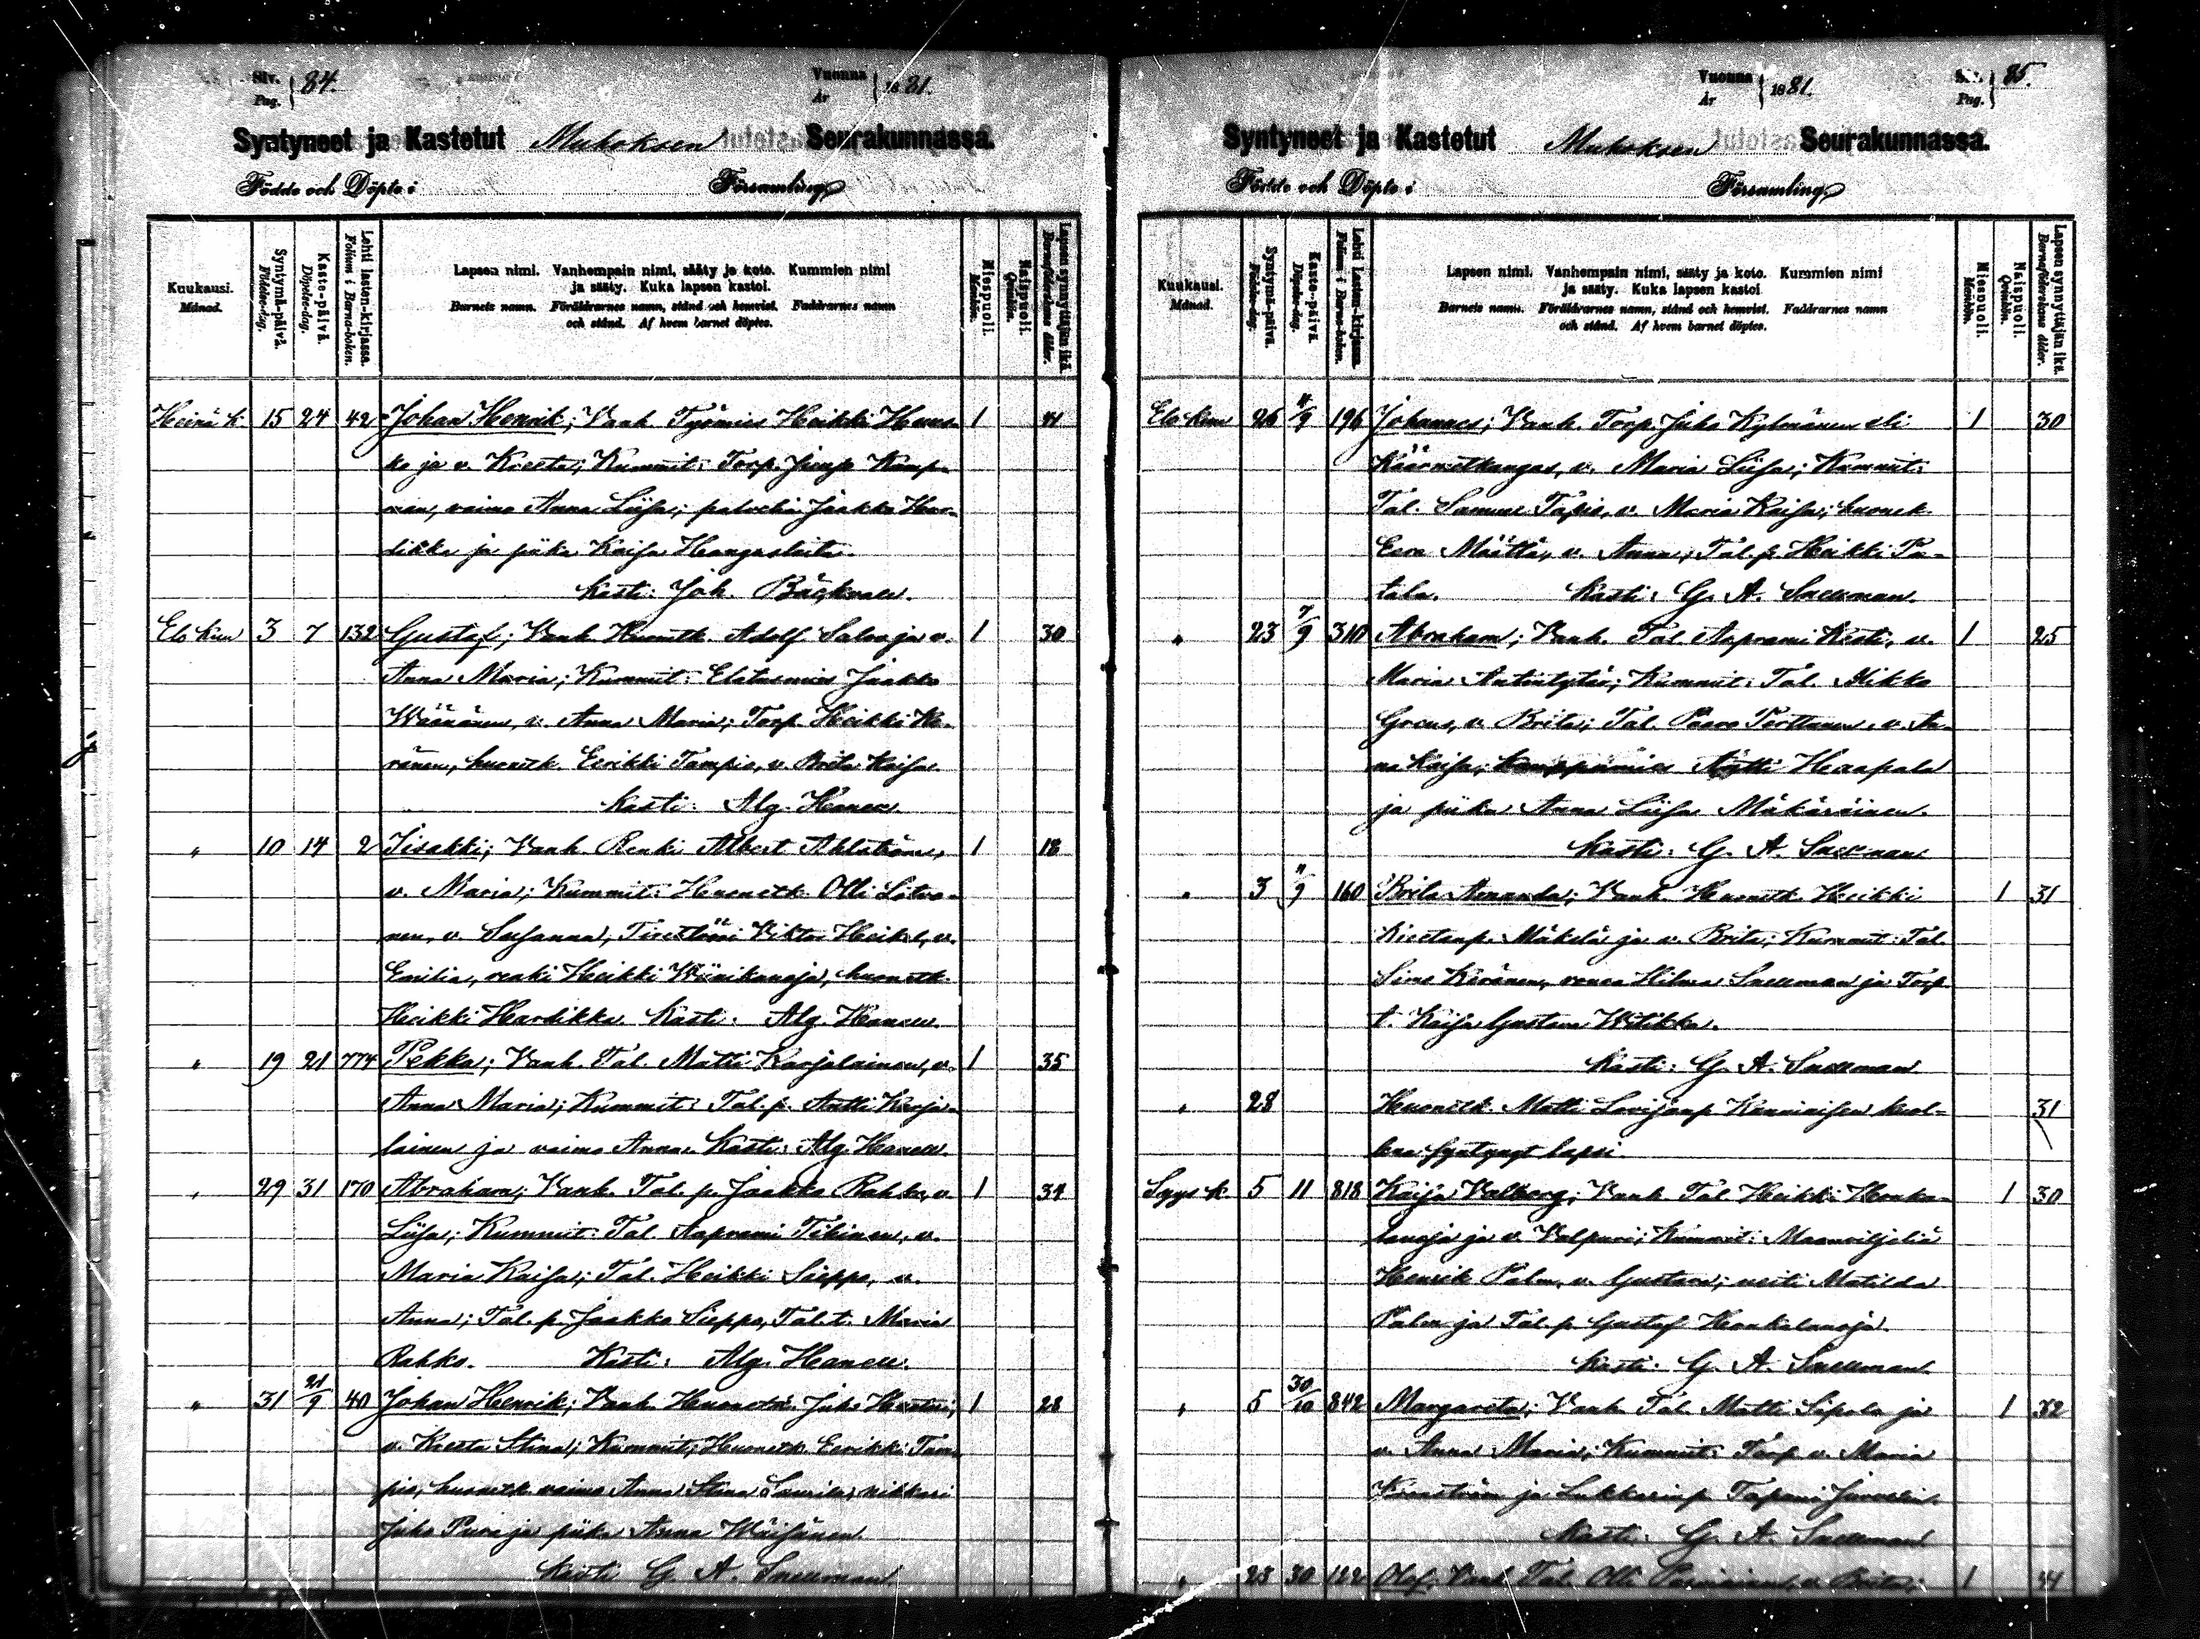 Siv. Pag. 84.
Vuonna År 1881.
Syntyneet ja Kastetut Muhoksen Seurakunnassa.
Födde och Döpte i Församling
Kuukausi. Månad.
Syntymä-päivä. Födelse-dag.
Kaste-päivä. Döpelse-dag.
Lehti lasten-kirjassa. Folium i Barna-boken.
Lapsen nimi. Vanhempain nimi, sääty ja koto. Kummien nimi
ja sääty. Kuka lapsen kastoi.
Barnets namn. Föräldrarnes namn, stånd och hemvist. Faddrarnes namn
och stånd. Af hvem barnet döptes.
Miespuoli. Mankön.
Naispuoli. Qvinkön.
Lapsen synnyttäjän ikä. Barnaföderskans ålder.
Heinä k. 15 24 42 Johan Henrik; Vanh. Työmies Heikki 1 41
ko ja v. Kreeta; Kummit: Torp.
nen, vaimo Anna Liisa; Jaakko Har-
likka ja piika Kaisa
Kasti: Joh. Bäckman.
Elo kuu 3 7 132 Gustaf; Vanh. Huonetk. Adolf Salo ja v. 1 30
Anna Maria; Kummit: Jaakko
Väänänen, v. Anna Maria; Torp. Heikki Ke-
ränen, huonetk. Eerikki Tampio, v. Brita Kaisa
Kasti: Alg. Hanell.
" 10 14 2 Iisakki; Vanh. Renki Albert Ahlström, 1 18
v. Maria; Kummit: Huonetk. Olli
nen, v. Susanna, Viktor Heikel, v.
Emilia, renki Heikki Viinikanoja, huonetk.
Heikki Hardikka. Kasti: Alg. Hanell
" 19 21 774 Pekka; Vanh. Tal. Matti Karjalainen, v. 1 35
Anna Maria; Kummit: Tal. p. Antti Karja-
lainen ja vaimo Anna. Kasti: Alg. Hanell.
" 29 31 170 Abraham; Vanh. Tal. p. Jaakko Rahko, v. 1 34
Liisa; Kummit: Tal. Aaprami Tikinen, v.
Maria Kaisa; Tal. Heikki Sieppo, v.
Anna; Tal. p. Jaakko Sieppo, Tal. t. Maria
Rahko. Kasti: Alg. Hanell.
" 31 21/9 40 Johan Henrik; Vanh. Huonetk. Juho 1 28
v. Kreeta Stina; Kummit: Huonetk. Eerikki Tam-
pio, huonetk. vaimo Anna Stina Saurila, nikkari
Juho Pura ja piika Anna Väisänen.
Kasti G. A. Snellman.
Siv. Pag. 85.
Vuonna År 1881.
Syntyneet ja Kastetut Muhoksen Seurakunnassa.
Födde och Döpte i Församling
Kuukausi. Månad.
Syntymä-päivä. Födelse-dag.
Kaste-päivä. Döpelse-dag.
Lehti Lasten-kirjassa. Folium i Barna-boken.
Lapsen nimi. Vanhempain nimi, sääty ja koto. Kummien nimi
ja sääty. Kuka lapsen kastoi
Barnets namn. Föräldrarnes namn, stånd och hemvist. Faddrarnes namn
och stånd. Af hvem barnet döptes.
Miespuoli. Mankön.
Naispuoli. Qvinkön.
Lapsen synnyttäjän ikä. Barnaföderskans ålder.
Elo kuu 26 4/9 196 Johannes; Vanh. Torp. Juho Kylmänen eli 1 30
Käärmetkangas, v. Maria Liisa; Kummit:
Tal. Samuel Tapio, v. Maria Kaisa; huonek.
Eero Määttä, v. Anna; Tal. p. Heikki Pa-
tala. Kasti: G. A. Snellman.
" 23 7/9 310 Abraham; Vanh. Tal. Aaprami Kesti, v. 1 25
Maria Antintytär; Kummit: Tal. Mikko
v. Brita; Tal. Paavo Perttunen, v. An-
na Kaisa; Antti Haapala
ja piika Anna Liisa Mäkäräinen.
Kasti: G. A. Snellman
" 3 11/9 160 Brita Amanda; Vanh. Huonetk. Heikki 1 31
Mäkelä ja v. Brita; Kummit: Tal.
Simo Keränen, rouva Hilma Snellman ja Torp.
t. Kaisa Gustava
Kasti: G. A. Snellman
" 28 Huonetk. Matti kuol- 31
leena syntynyt lapsi.
Syys k. 5 11 818 Kaisa Valborg; Vanh. Tal. Heikki Honka- 1 30
lanoja ja v. Valpuri; Kummit: Maanviljeliä
Henrik Palm, v. Gustava; neiti Matilda
Palm ja Tal. p. Gustaf Honkalanoja.
Kasti: G. A. Snellman
" 5 30/10 842 Margareta; Vanh. Tal. Matti Sipola ja 1 32
v. Anna Maria; Kummit: Torp. v. Maria
ja Lukkarin p. Tapani
Kasti: G. A. Snellman
" 23 30 122 Olof; Vanh. Tal. Olli v. Brita; 1 44